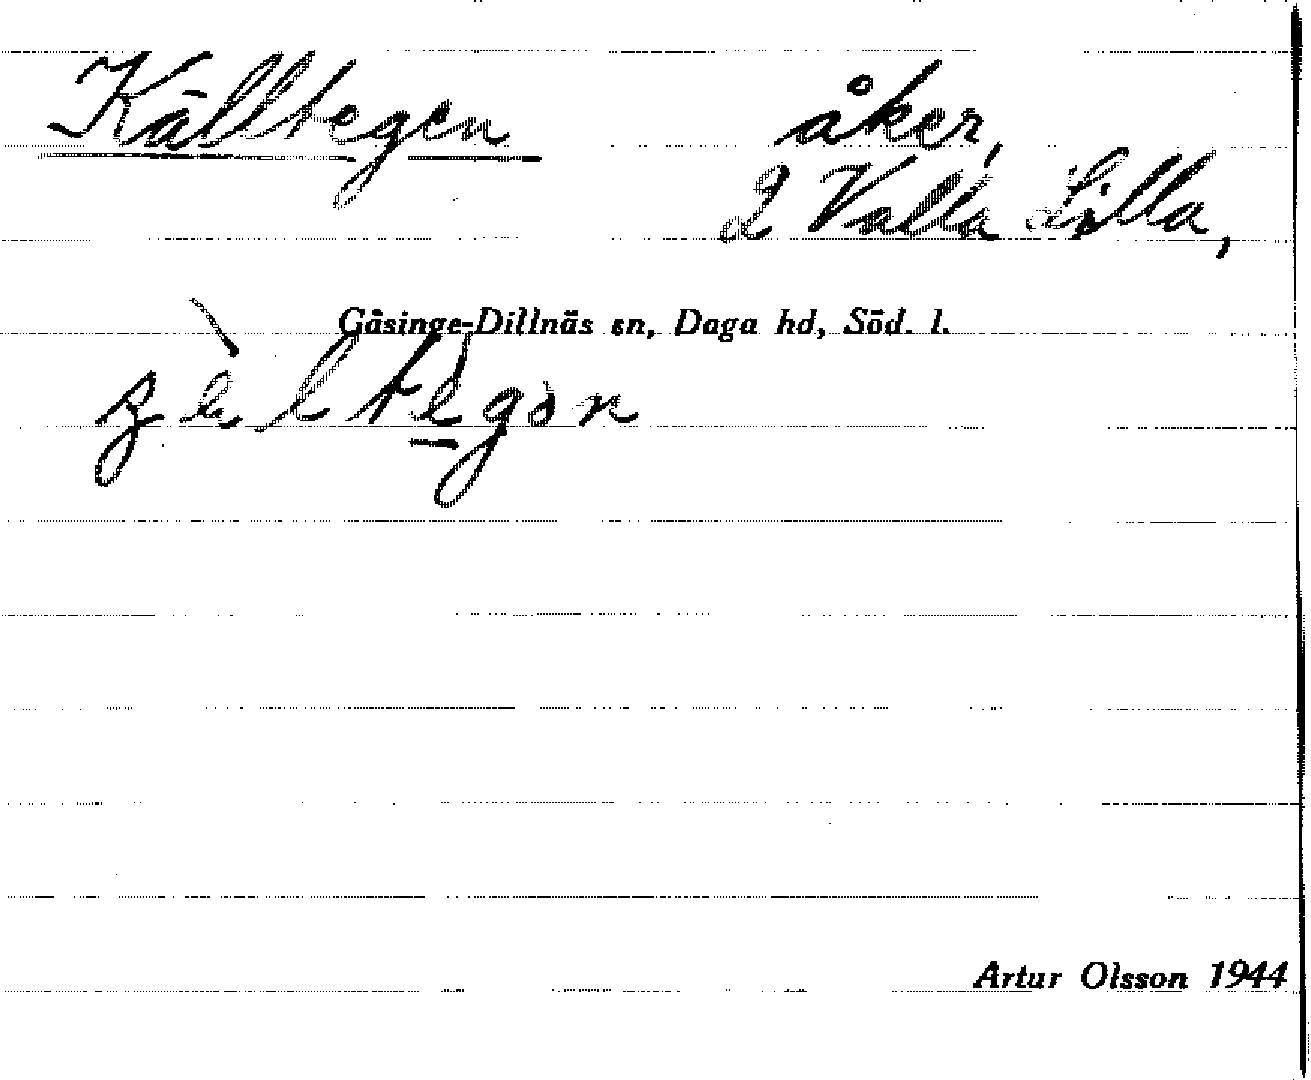 Källtegen åker,
å Valla Lilla,
Gåsinge-Dillnäs sn, Daga hd, Söd. l.
Artur Olsson 1944